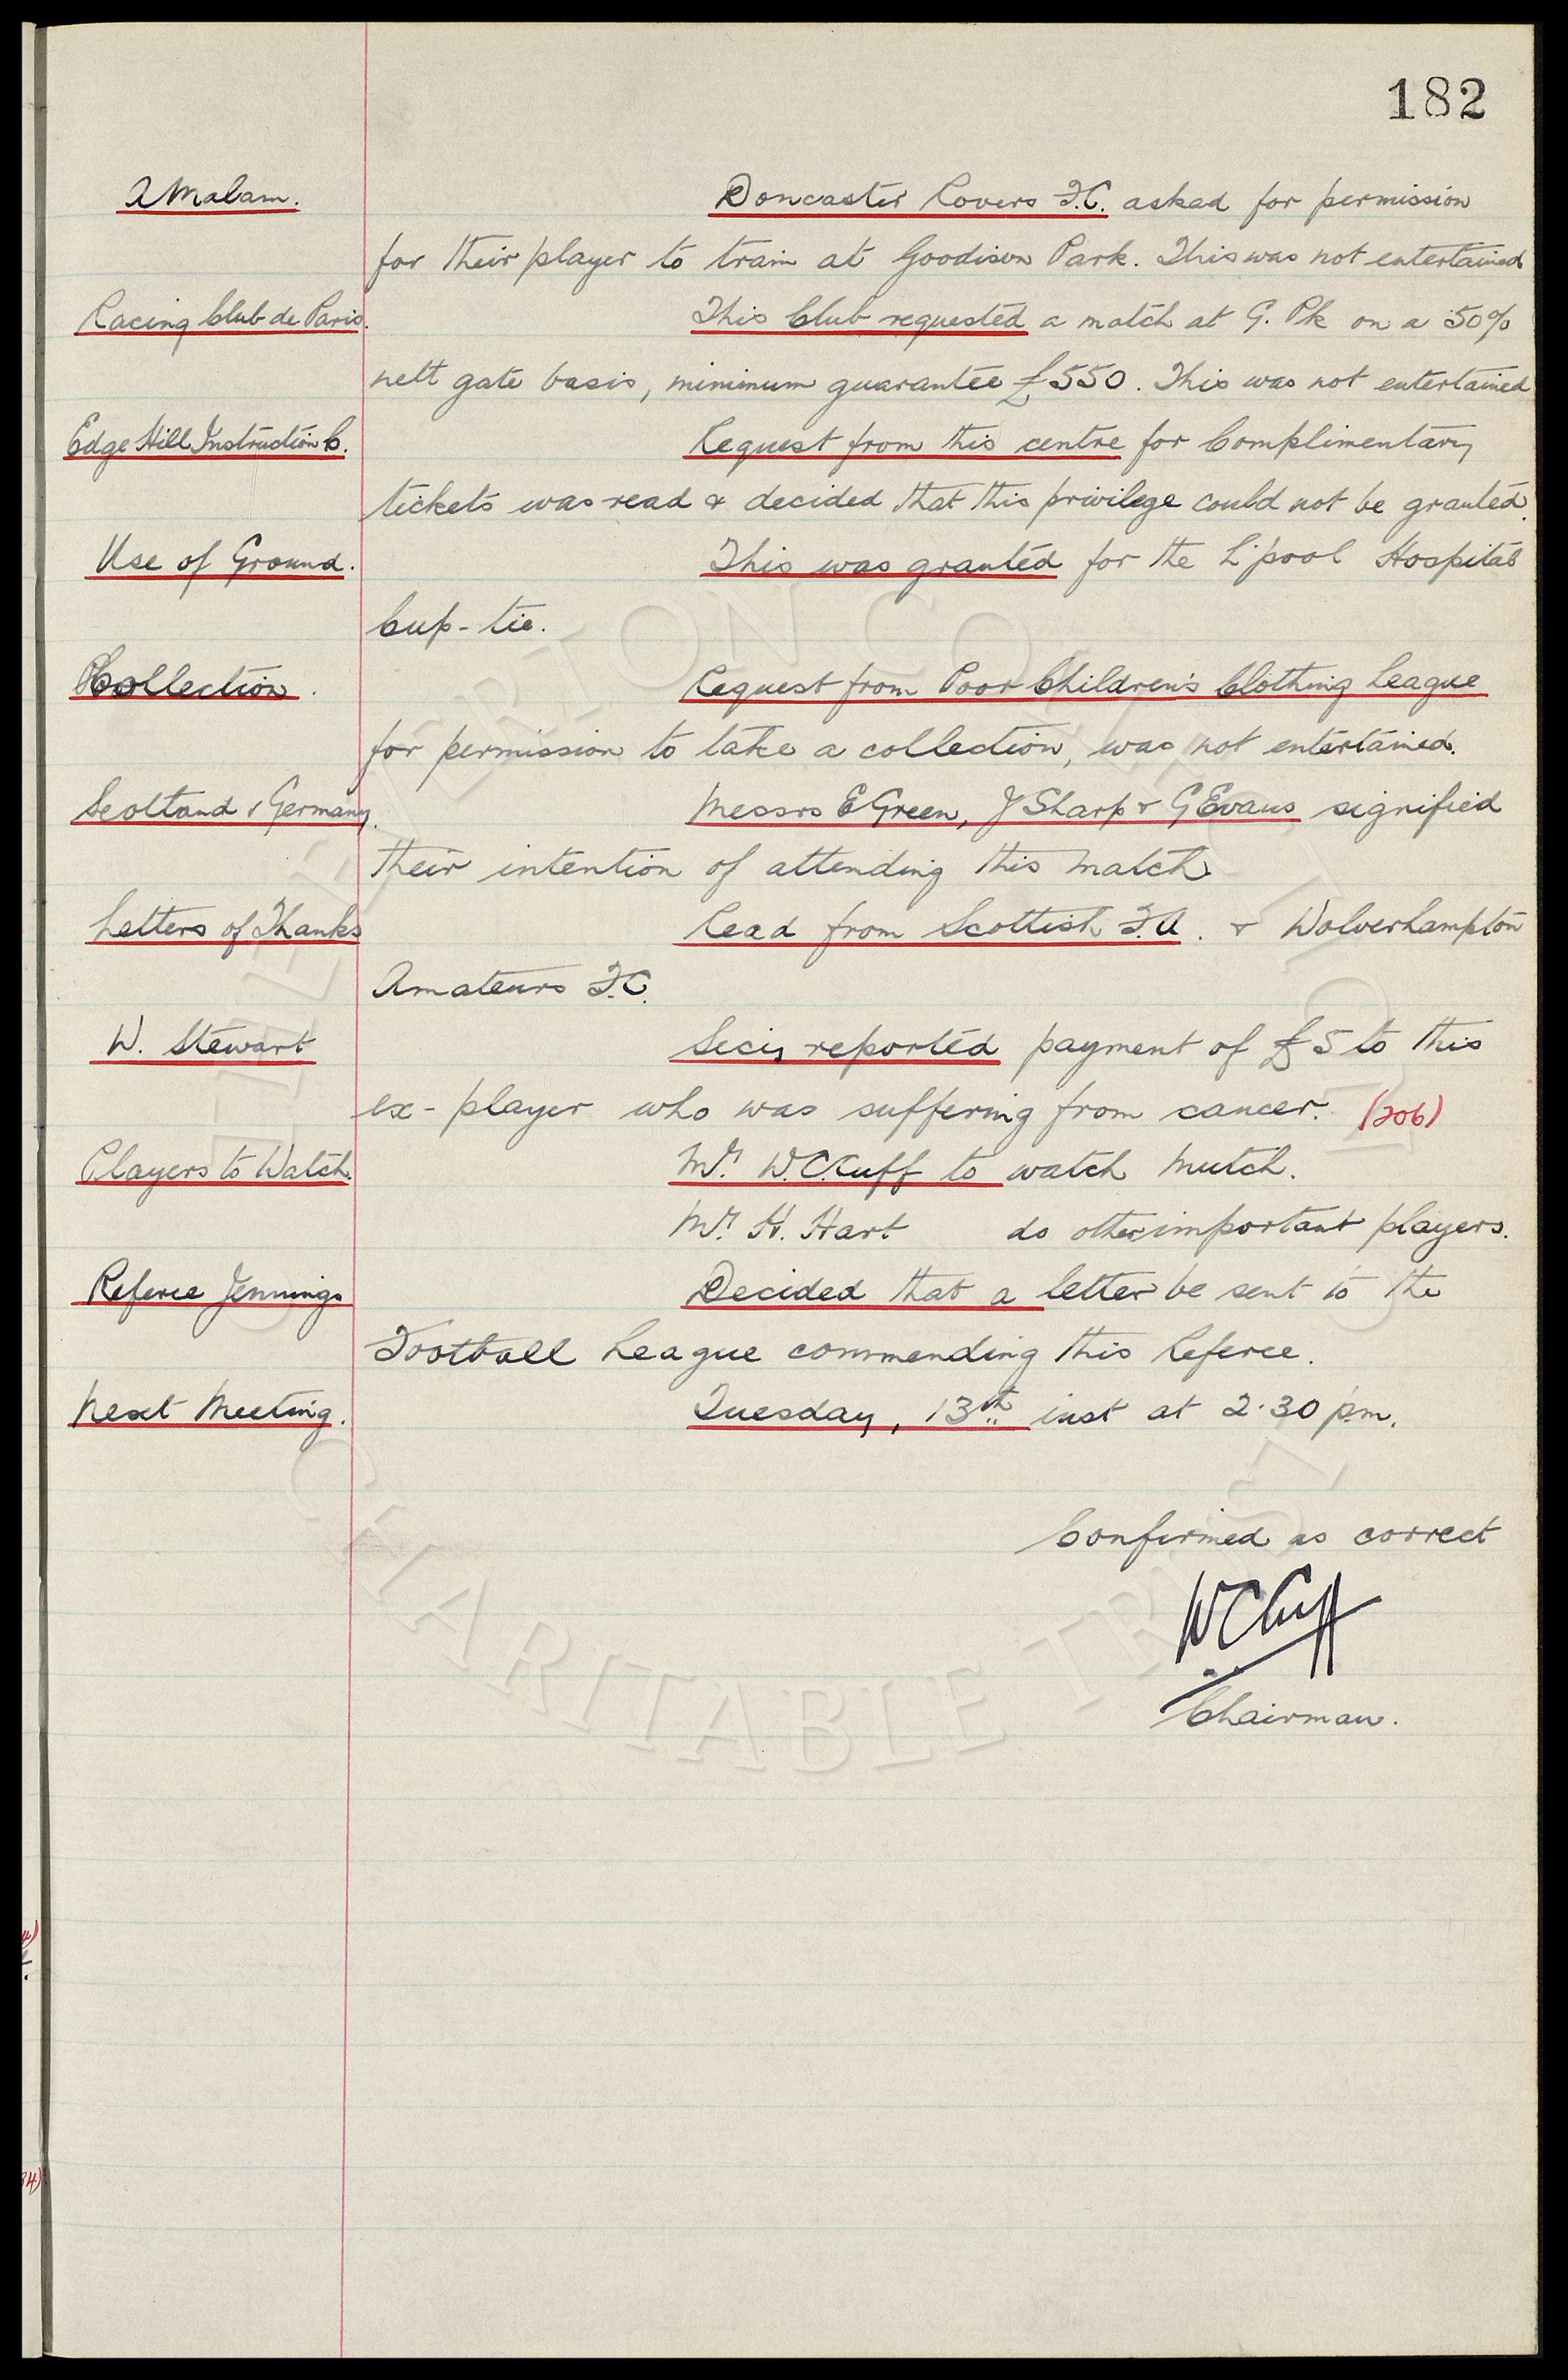 182
A Malam. Doncaster Rovers F.C. asked for permission
for their player to train at Goodison Park. This was not entertained
Racing Club de Paris. This Club requested a match at G. Pk on a 50%
nett gate basis, minimum guarantee £550. This was not entertained
Edge Hill Instruction C. Request from this centre for Complimentary
tickets was read & decided that this privilege could not be granted.
Use of Ground. This was granted for the L'pool Hospital
Cup-tie.
Collection. Request from Poor Children's Clothing League
for permission to take a collection, was not entertained.
Scotland & Germany. Messrs E Green, J Sharp & G Evans signified
their intention of attending this match
Letters of Thanks Read from Scottish F.A. & Wolverhampton
Amateurs F.C.
W. Stewart Secy reported payment of £5 to this
ex-player who was suffering from cancer. (206)
Players to Watch. Mr. W.C. Cuff to watch Mutch.
Mr. H. Hart do other important players.
Referee Jennings Decided that a letter be sent to the
Football League commending this Referee.
Next Meeting. Tuesday, 13th inst at 2.30 p.m.
Confirmed as correct
W C Cuff
Chairman.
EVERTON COLLECTION
CHARITABLE TRUST